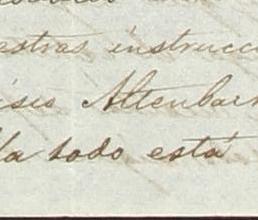 estras instrucci
isio Altenbac
Ya todo está